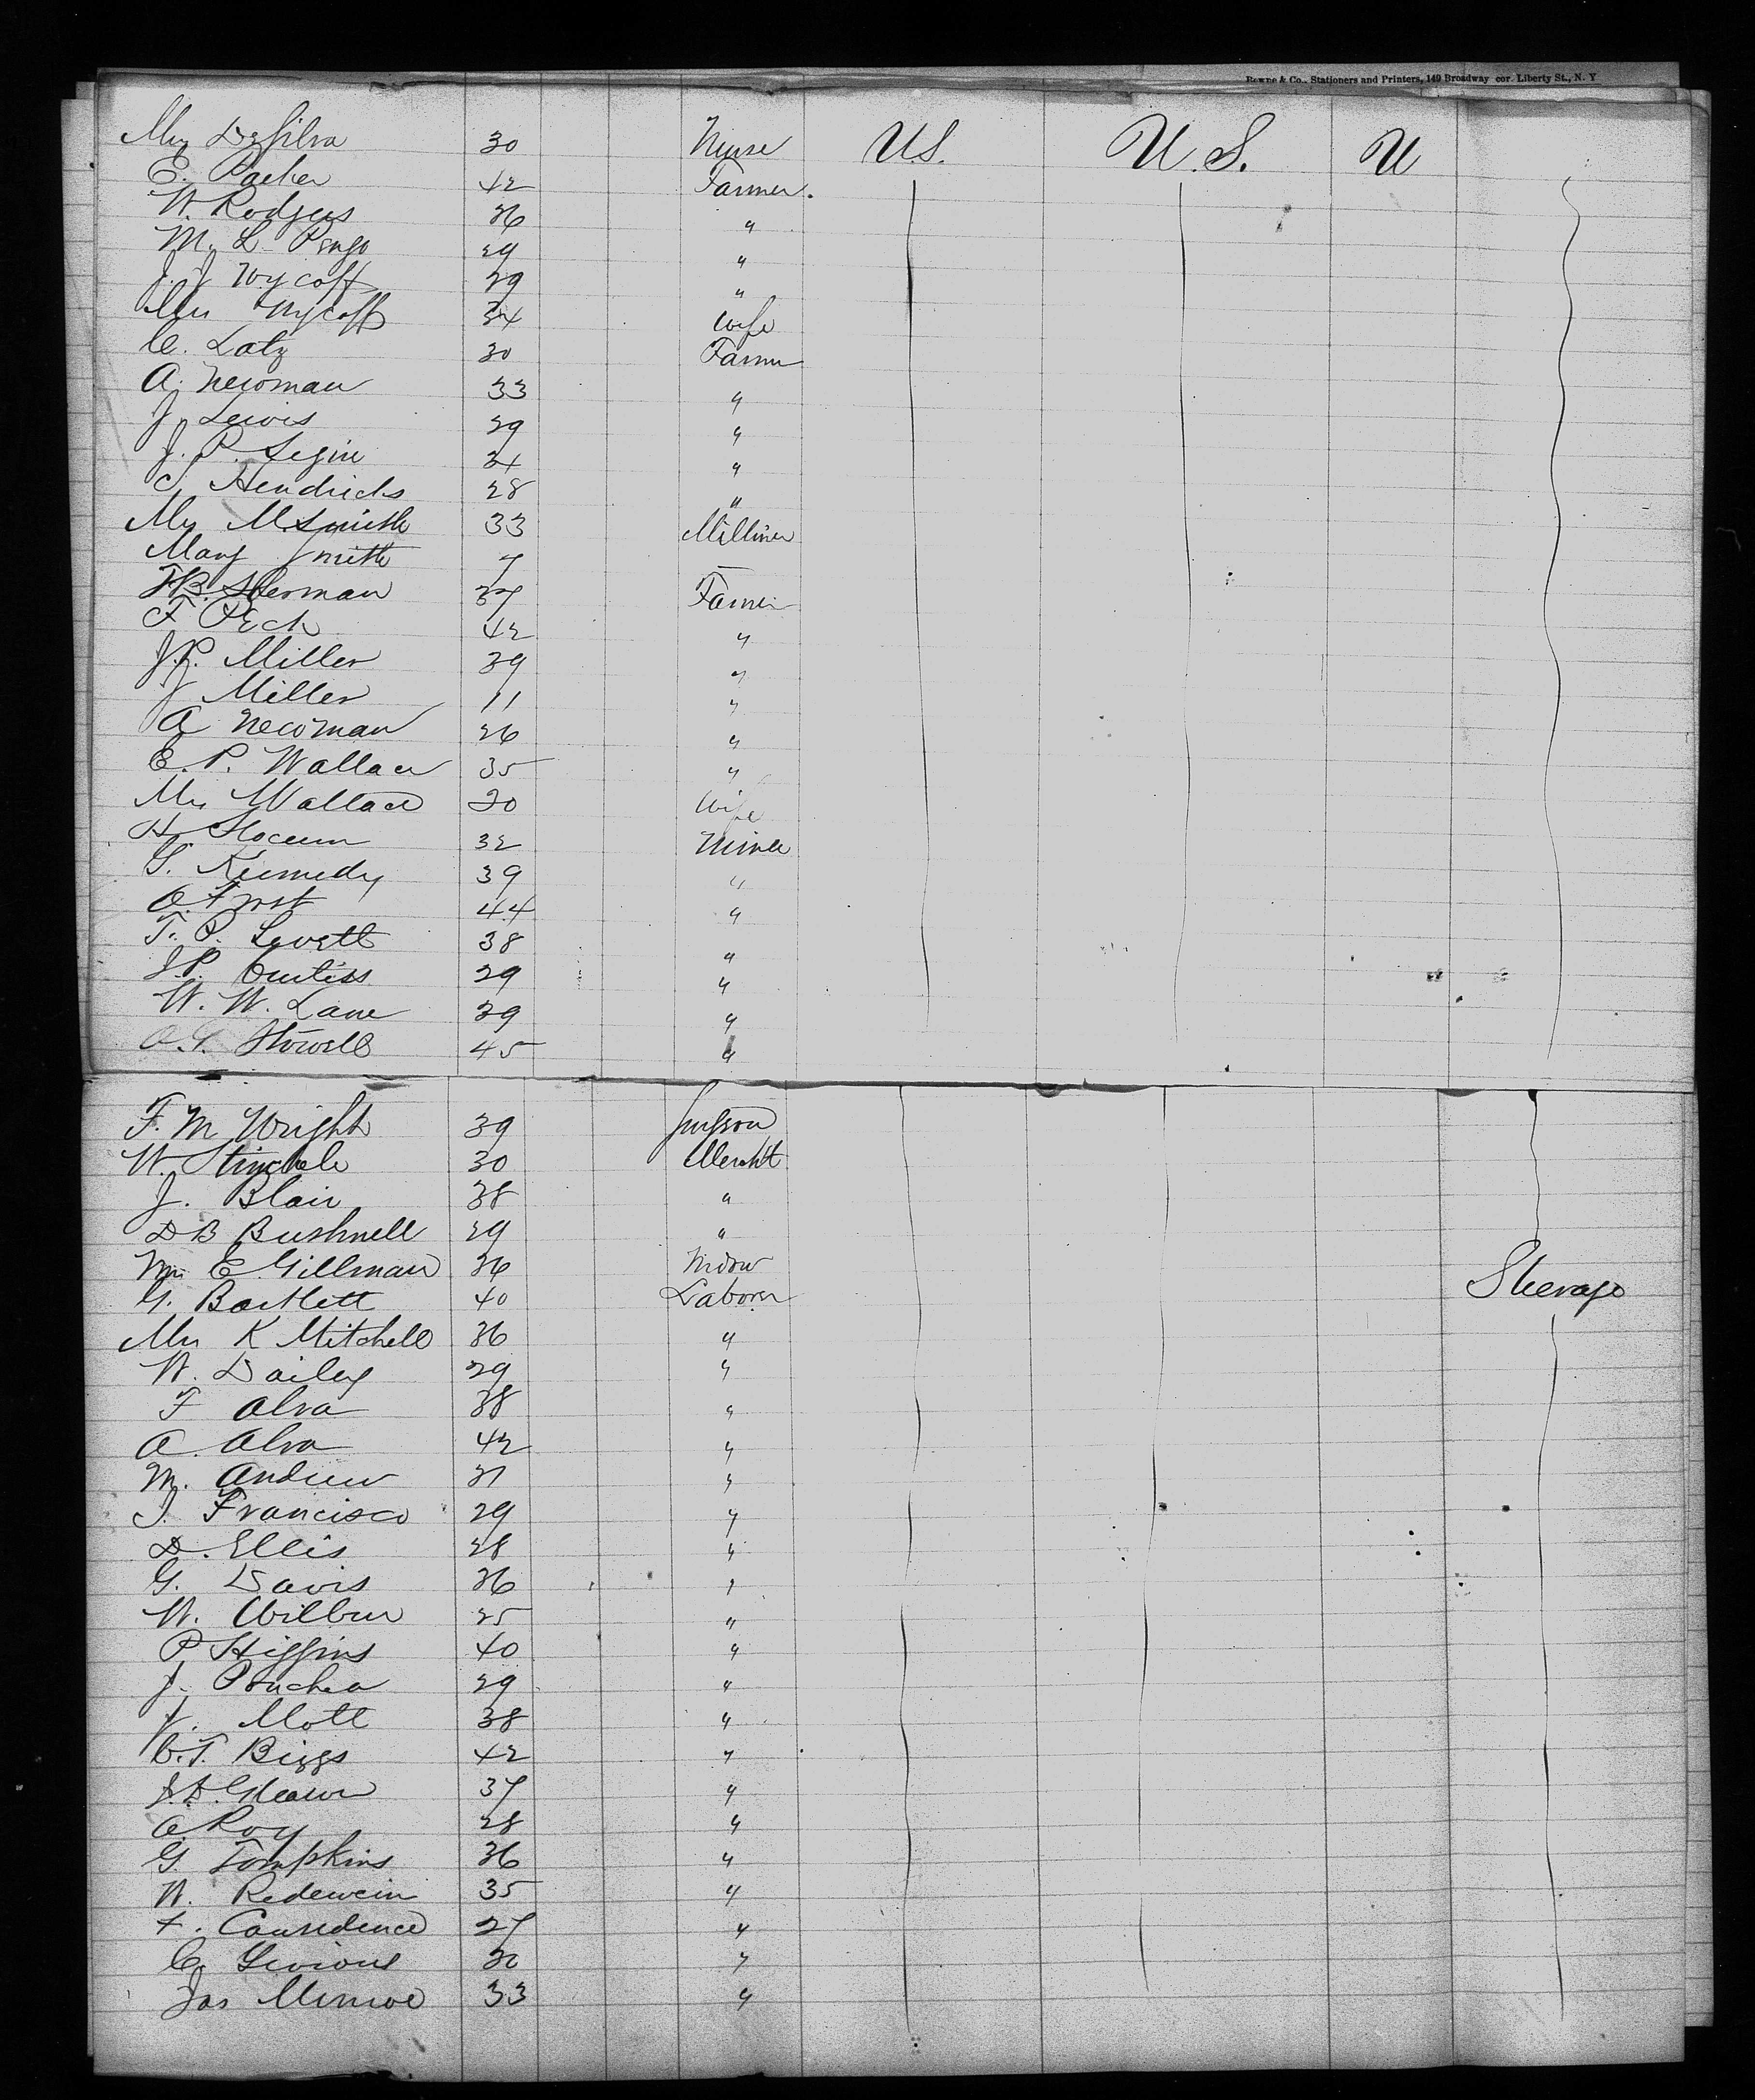 Bowne & Co., Stationers and Printers, 149 Broadway cor. Liberty St., N. Y
Mrs DeSilva 30 Nurse U.S. U.S. U
E. Parker 42 Farmer.
W. Rodgers 36 "
M. L. 29 "
J. J Wycoff 29 "
Mrs Wycoff 34 Wife
C. Latz 30 Farmer
A. Newman 33 "
J. Lewis 29 "
J. P. Segine 34 "
C. Hendricks 28 "
Mrs M. Smith 33 Milliner
Mary Smith 7 —
F.B. Sherman 37 Farmer
F Peck 42 "
J.P. Miller 39 "
J Miller 11 "
A Newman 26 "
E. P. Wallace 35 "
Mrs Wallace 30 Wife
H. Slocum 32 Miner
S. Kennedy 39 "
O. Frost 44 "
T. P. Levett 38 "
J.P. Curtiss 29 "
W. W. Lane 39 "
O.G. Stowell 45 "
F. M Wright 39 Surgeon
W. 30 Mercht
J. Blair 38 "
D B Bushnell 29 "
Mrs E. Gillman 36 Widow
G. Bartlett 40 Laborer Steerage
Mrs K Mitchell 36 "
W. Dailey 29 "
F Alva 38 "
A Alva 42 "
M. Andrew 31 "
J. Francisco 29 "
D. Ellis 28 "
G. Davis 36 "
W. Wilbur 25 "
P Higgins 40 "
J. 29 "
J. Mott 38 "
C.T. Biggs 42 "
37 "
A Roy 28 "
G. Tompkins 36 "
W. Redewein 35 "
27 "
C. 30 "
Jas Munroe 33 "